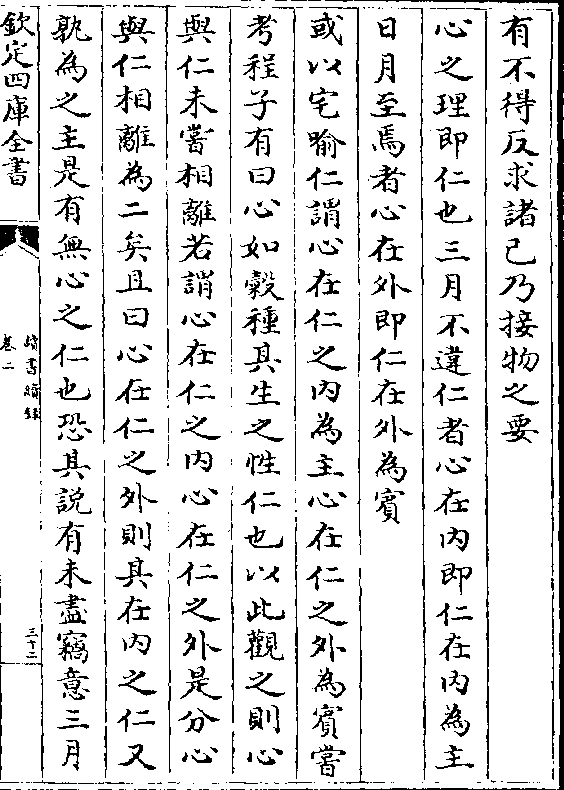 有不得反求諸已乃接物之要
心之理即仁也三月不違仁者心在內即仁在內為主
日月至焉者心在外即仁在外為賓
或以宅喻仁謂心在仁之內為主心在仁之外為賓嘗
考程子有曰心如穀種其生之性仁也以此觀之則心
與仁未嘗相離若謂心在仁之內心在仁之外是分心
與仁相離為二矣且曰心在仁之外則其在內之仁又
孰為之主是有無心之仁也恐其說有未盡竊意三月
欽定四庫全書
讀書續録
卷二
三十二